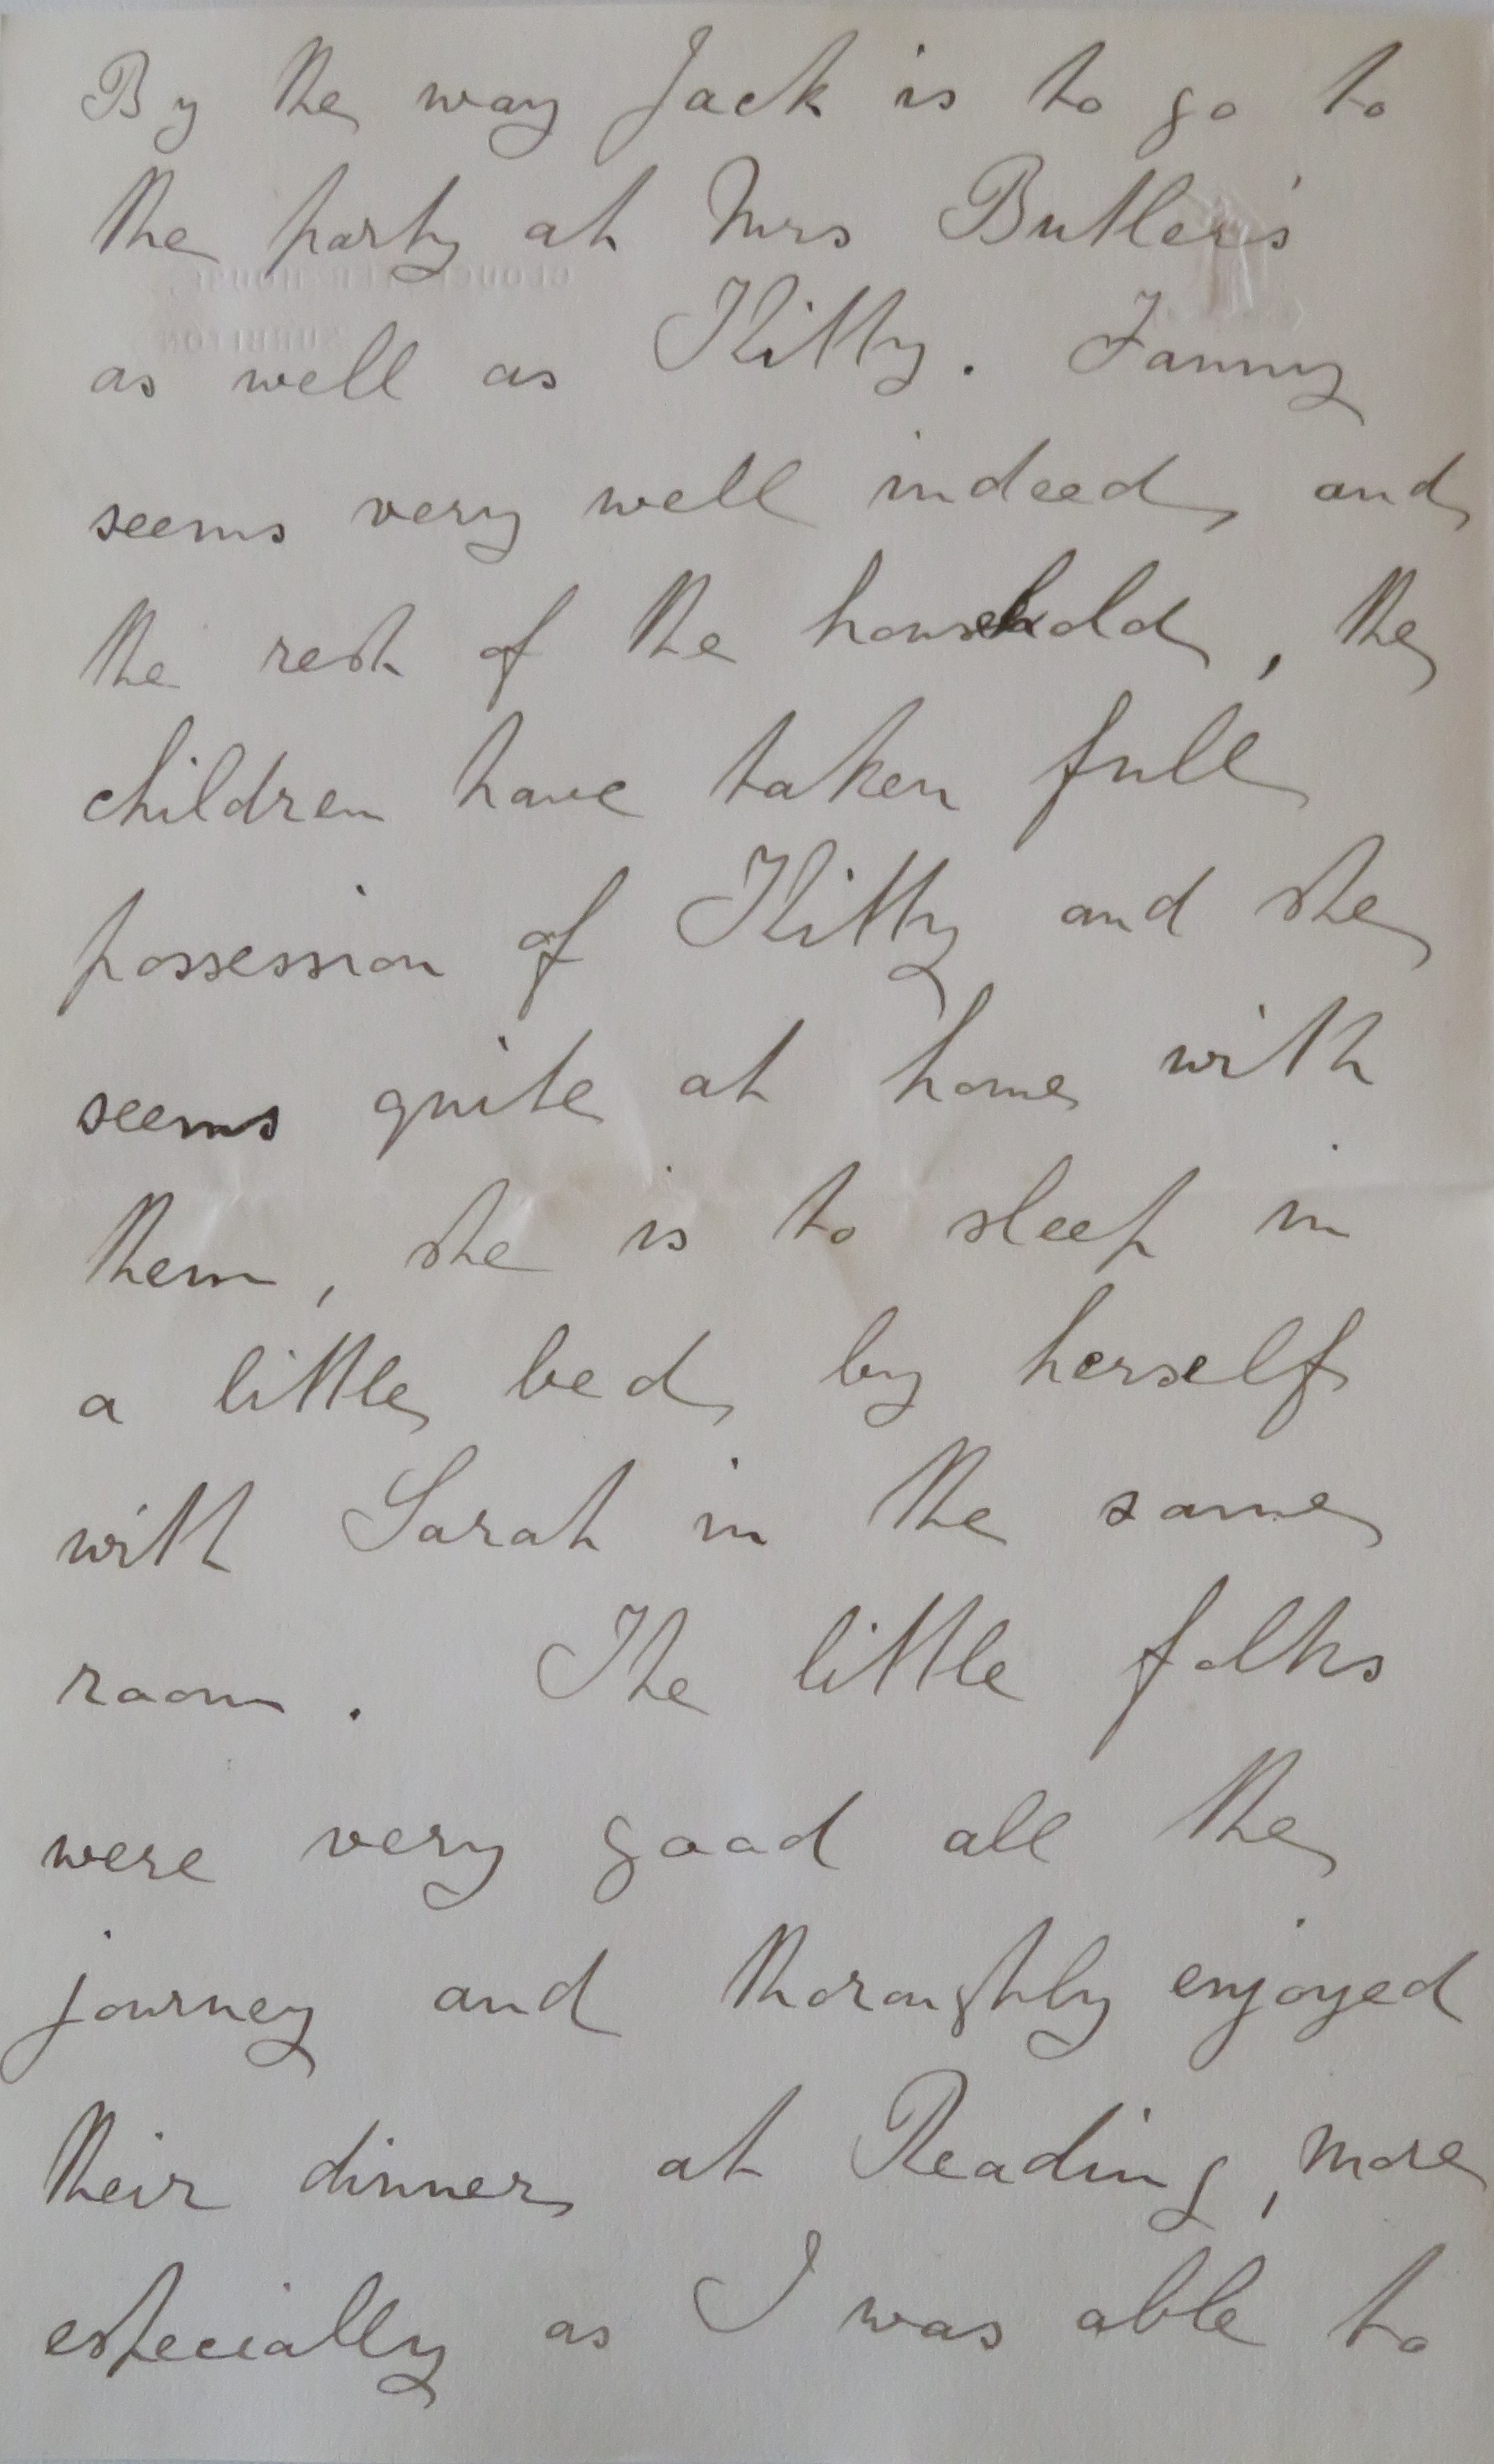 By the way Jack is to go to
the party at Mrs Butler's
as well as Kitty. Fanny
seems very well indeed and
the rest of the household, the
children have taken full
possession of Kitty and she
seems quite at home with
them, she is to sleep in
a little bed by herself
with Sarah in the same
room. The little folks
were very good all the
journey and thoroughly enjoyed
their dinner at Reading, more
especially as I was able to